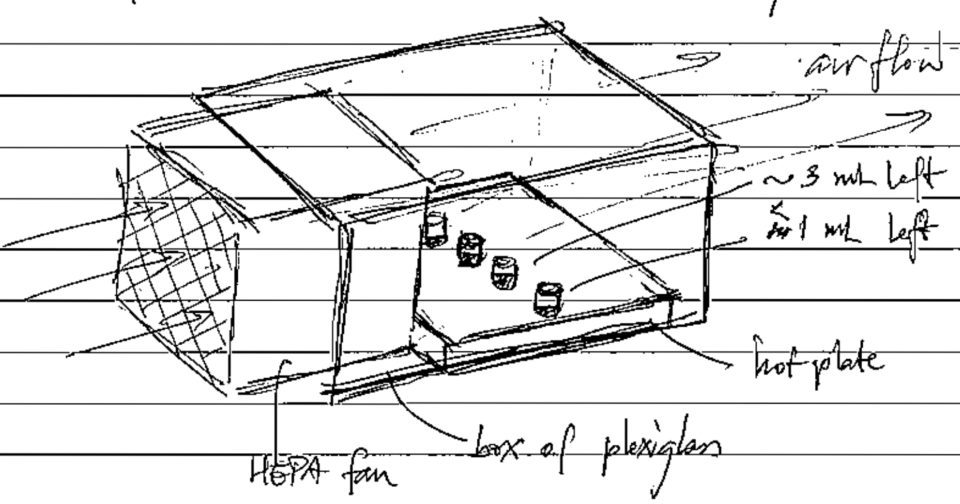 air flow
~ 3 mL left
≤ 1 mL left
hot plate
box of plexiglass
HEPA fan